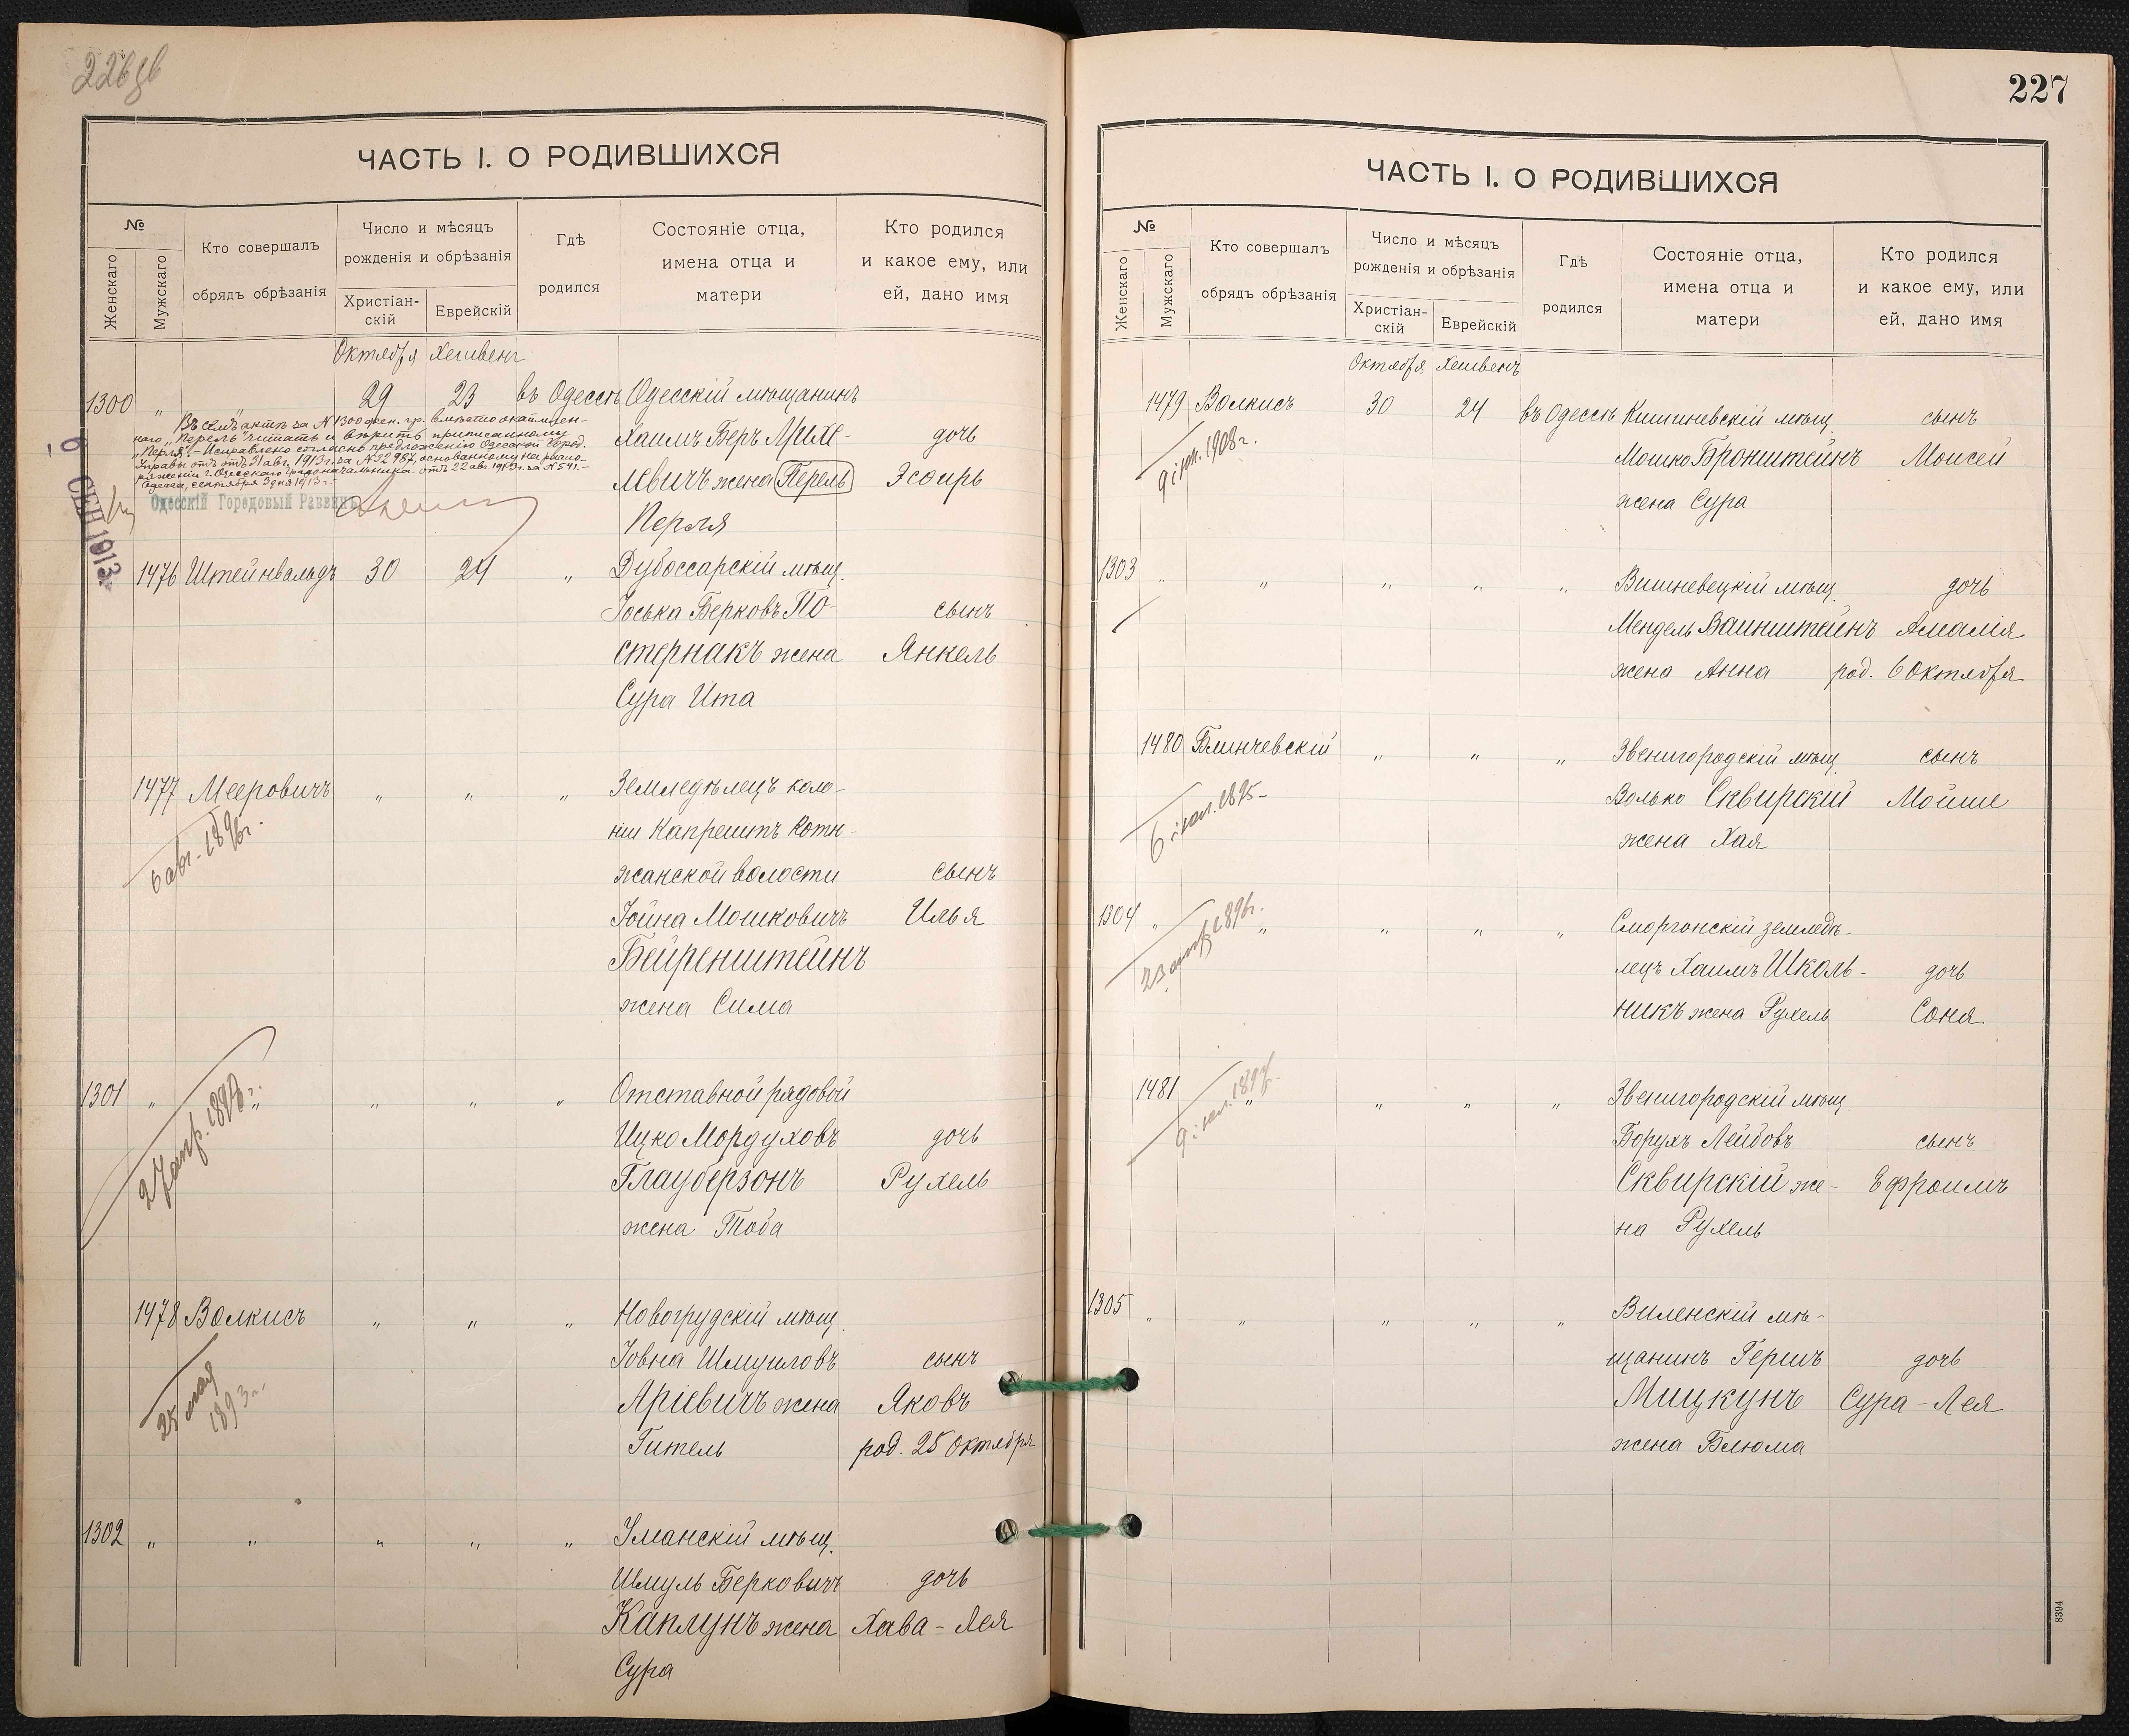 ЧАСТЬ I. О РОДИВШИХСЯ
№
Женскаго
Мужскаго
Кто совершалъ
обрядъ обрѣзанія
Число и мѣсяцъ
рожденія и обрѣзанія
Христіан-
скій
Еврейскій
Гдѣ
родился
Состояніе отца,
имена отца и
матери
Кто родился
и какое ему, или
ей, дано имя
Октября Хешвенъ
1300 „ „ 29 23 въ Одессѣ Одесскій мѣщанинъ
Въ семъ актѣ за № 1300 жен. гр. вмѣсто окаймлен-
наго „Перель" читать и вѣрить приписанному
„Перля". - Исправлено согласно предложенію Одесской Город.
Управы отъ 31 авг. 1913 г. за № 22987, основанному на распо-
ряженіи г. Одесскаго Градоначальника отъ 22 авг. 1913 г. за № 541. -
Одесса, сентября 3 дня 1913 г. -
Одесскій Городовый Раввинъ
СЕН 1913
Хаимъ Беръ дочь
левичъ жена Перель Эсѳирь
Перля
1476 Штейнвальдъ 30 24 „ Дубоссарскій мѣщ.
Іоська Берковъ По- сынъ
стернакъ жена Янкель
Сура Ита
1477 Мееровичъ „ „ „ Земледѣлецъ коло-
ніи Капрештъ Котю-
6 авг. 1896 г.
жанской волости сынъ
Іойна Мошковичъ Илья
Бейренштейнъ
жена Сима
1301 „ „ „ „ „ Отставной рядовой
27 апр. 1898 г.
Ицко Мордуховъ дочь
Глауберзонъ Рухель
жена Тоба
1478 Волкисъ „ „ „ Новогрудскій мѣщ.
Іовна Шмуиловъ сынъ
25 мая
1893 г.
Аріевичъ жена Яковъ
Гитель род. 25 Октября
1302 „ „ „ „ „ Уманскій мѣщ.
Шмуль Берковичъ дочь
Каплунъ жена Хава-Лея
Сура
227
ЧАСТЬ I. О РОДИВШИХСЯ
№
Женскаго
Мужскаго
Кто совершалъ
обрядъ обрѣзанія
Число и мѣсяцъ
рожденія и обрѣзанія
Христіан-
скій
Еврейскій
Гдѣ
родился
Состояніе отца,
имена отца и
матери
Кто родился
и какое ему, или
ей, дано имя
Октября Хешвенъ
1479 Волкисъ 30 24 въ Одессѣ Кишиневскій мѣщ. сынъ
1908 г.
Мошко Бронштейнъ Моисей
жена Сура
1303 „ „ „ „ „ Вишневецкій мѣщ. дочь
Мендель Ваинштейнъ Амалія
жена Анна род. 6 Октября
1480 Блинчевскій „ „ „ Звенигородскій мѣщ. сынъ
1895
Волько Сквирскій Мойше
жена Хая
1304 „ „ „ „ „ Сморгонскій земледѣ-
лецъ Хаимъ Школь- дочь
никъ жена Рухель Соня
1481 „ „ „ „ Звенигородскій мѣщ.
Борухъ Лейбовъ сынъ
Сквирскій же- Ефроимъ
на Рухель
1305 „ „ „ „ „ Виленскій мѣ-
щанинъ Гершъ дочь
Мицкунъ Сура-Лея
жена Блюма
8394